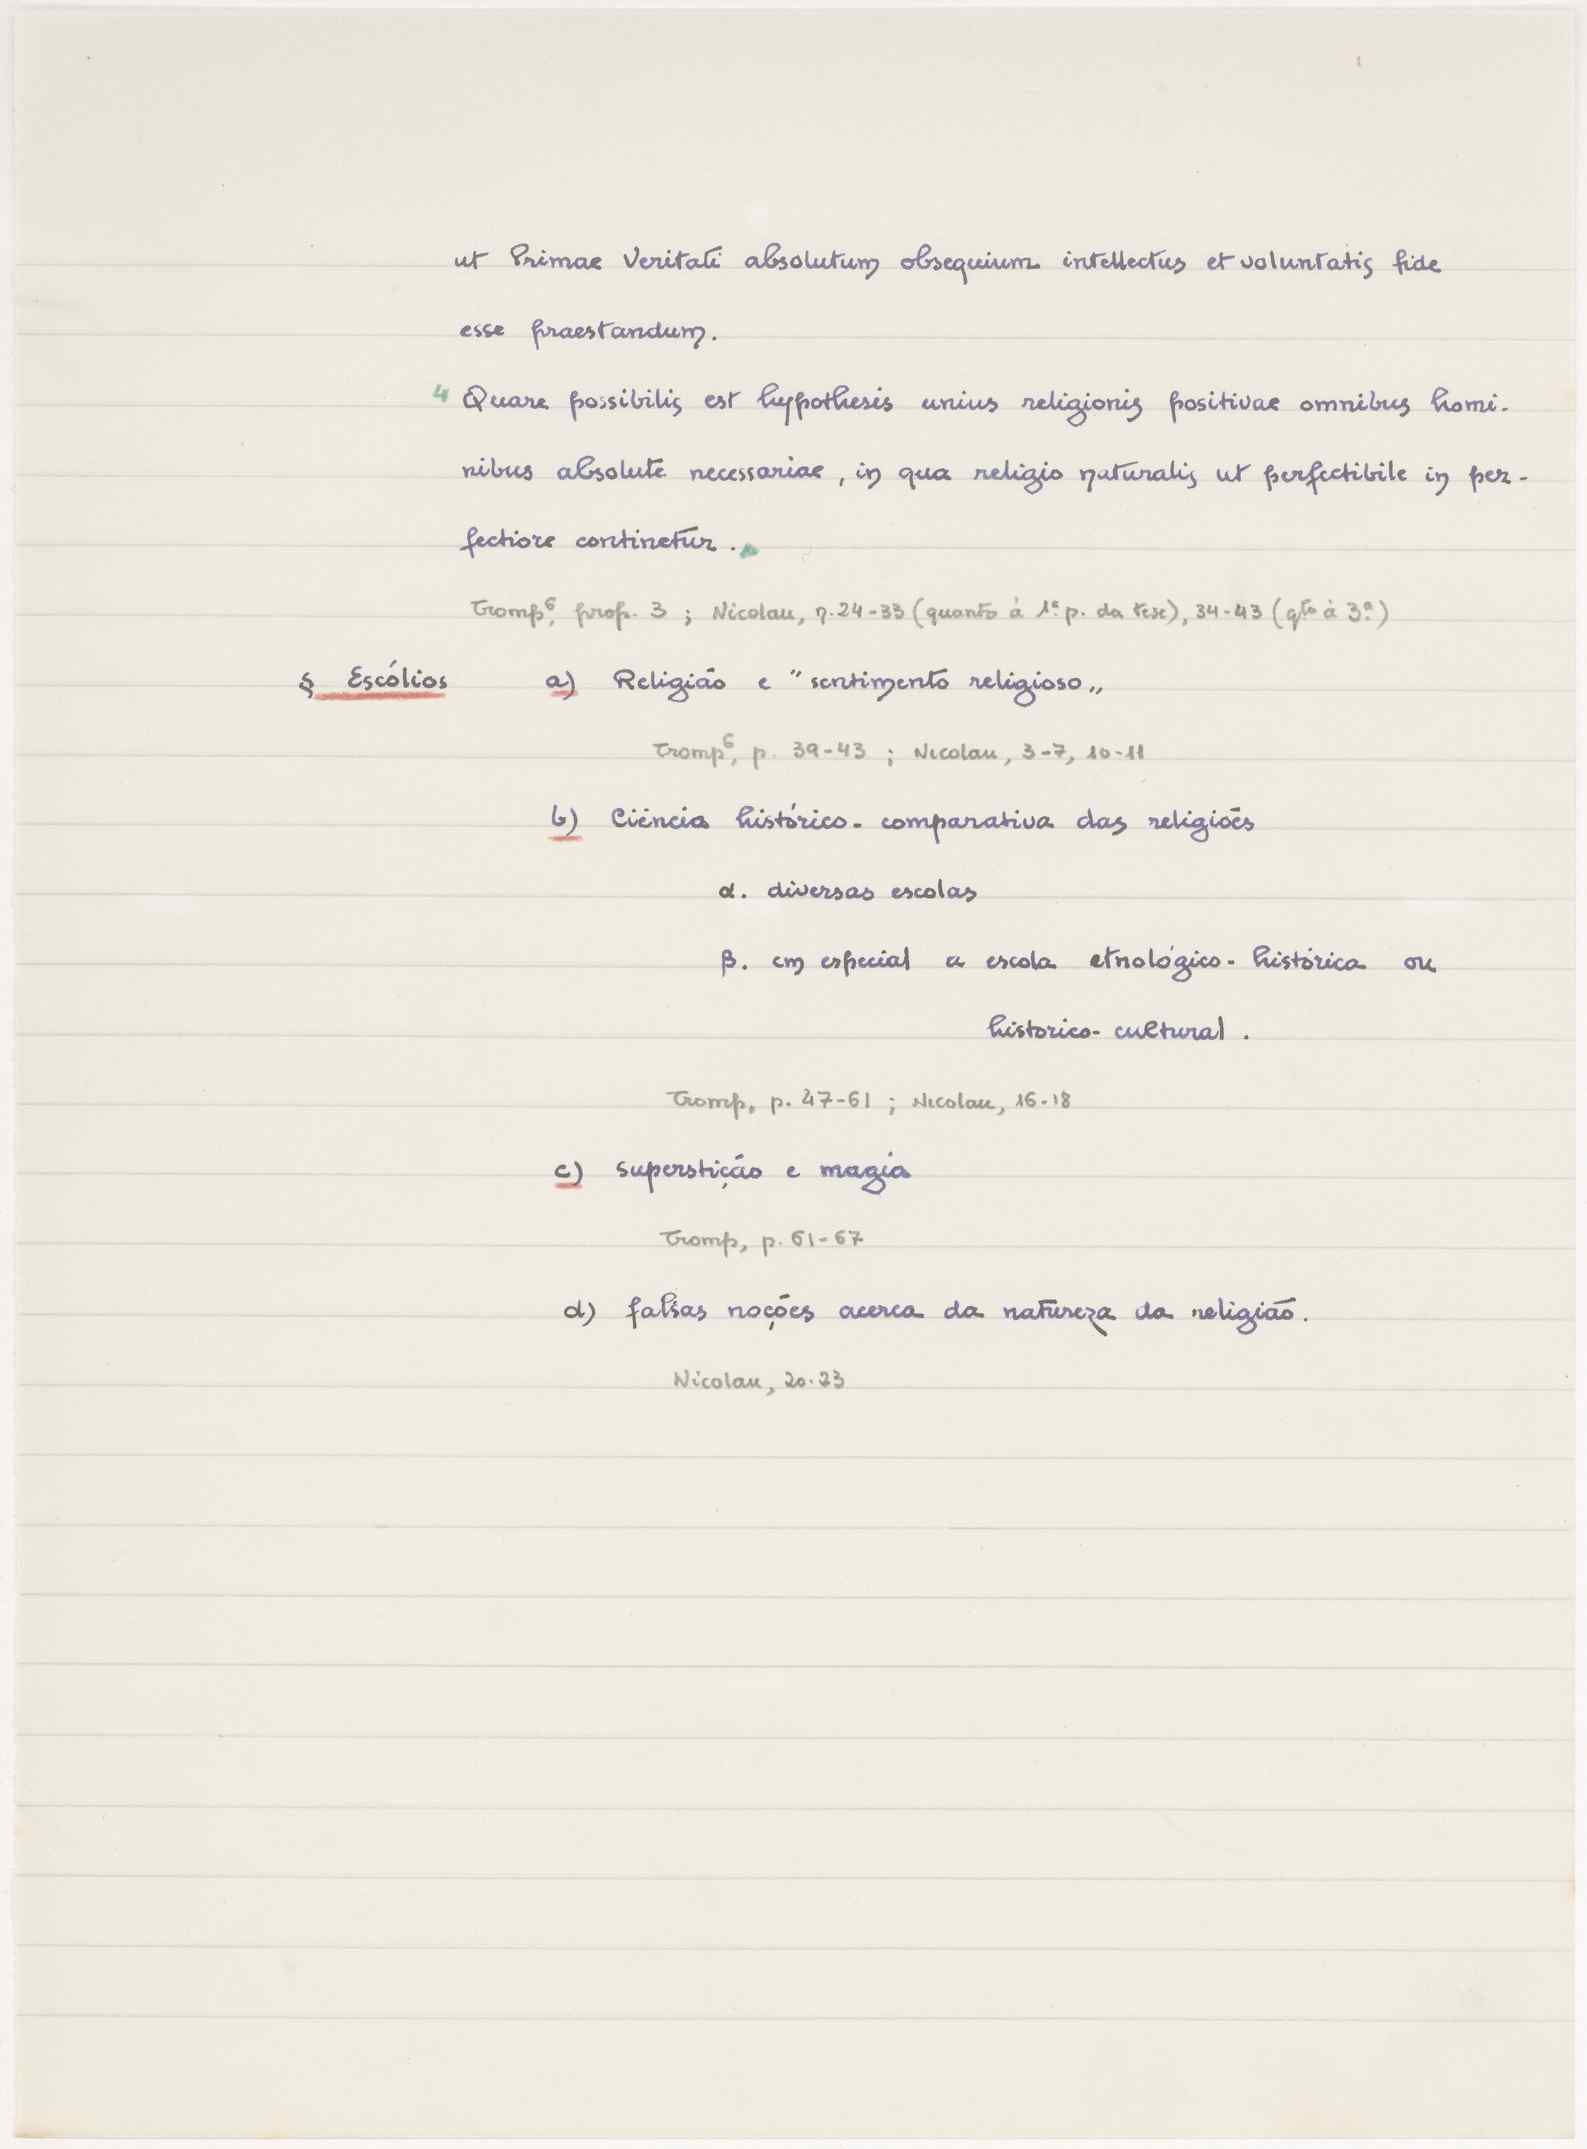 ut Primae Veritati absolutum obsequium intellectus et voluntatis fide
esse praestandum.
4 Quare possibilis est hypothesis unius religionis positivae omnibus homi-
nibus absolute necessariae, in qua religio naturalis ut perfectibile in per-
fectiore continetur.
Tromp⁶, prop. 3 ; Nicolau, n. 24-33 (quanto à 1ª p. da tese), 34-43 (qto à 3ª)
§ Escólios a) Religião e "sentimento religioso„
Tromp⁶, p. 39-43 ; Nicolau, 3-7, 10-11
b) Ciência histórico-comparativa das religiões
α. diversas escolas
β. em especial a escola etnológico-histórica ou
historico-cultural.
Tromp, p. 47-61 ; Nicolau, 16-18
c) superstição e magia
Tromp, p. 61-67
d) falsas noções acerca da natureza da religião.
Nicolau, 20-23